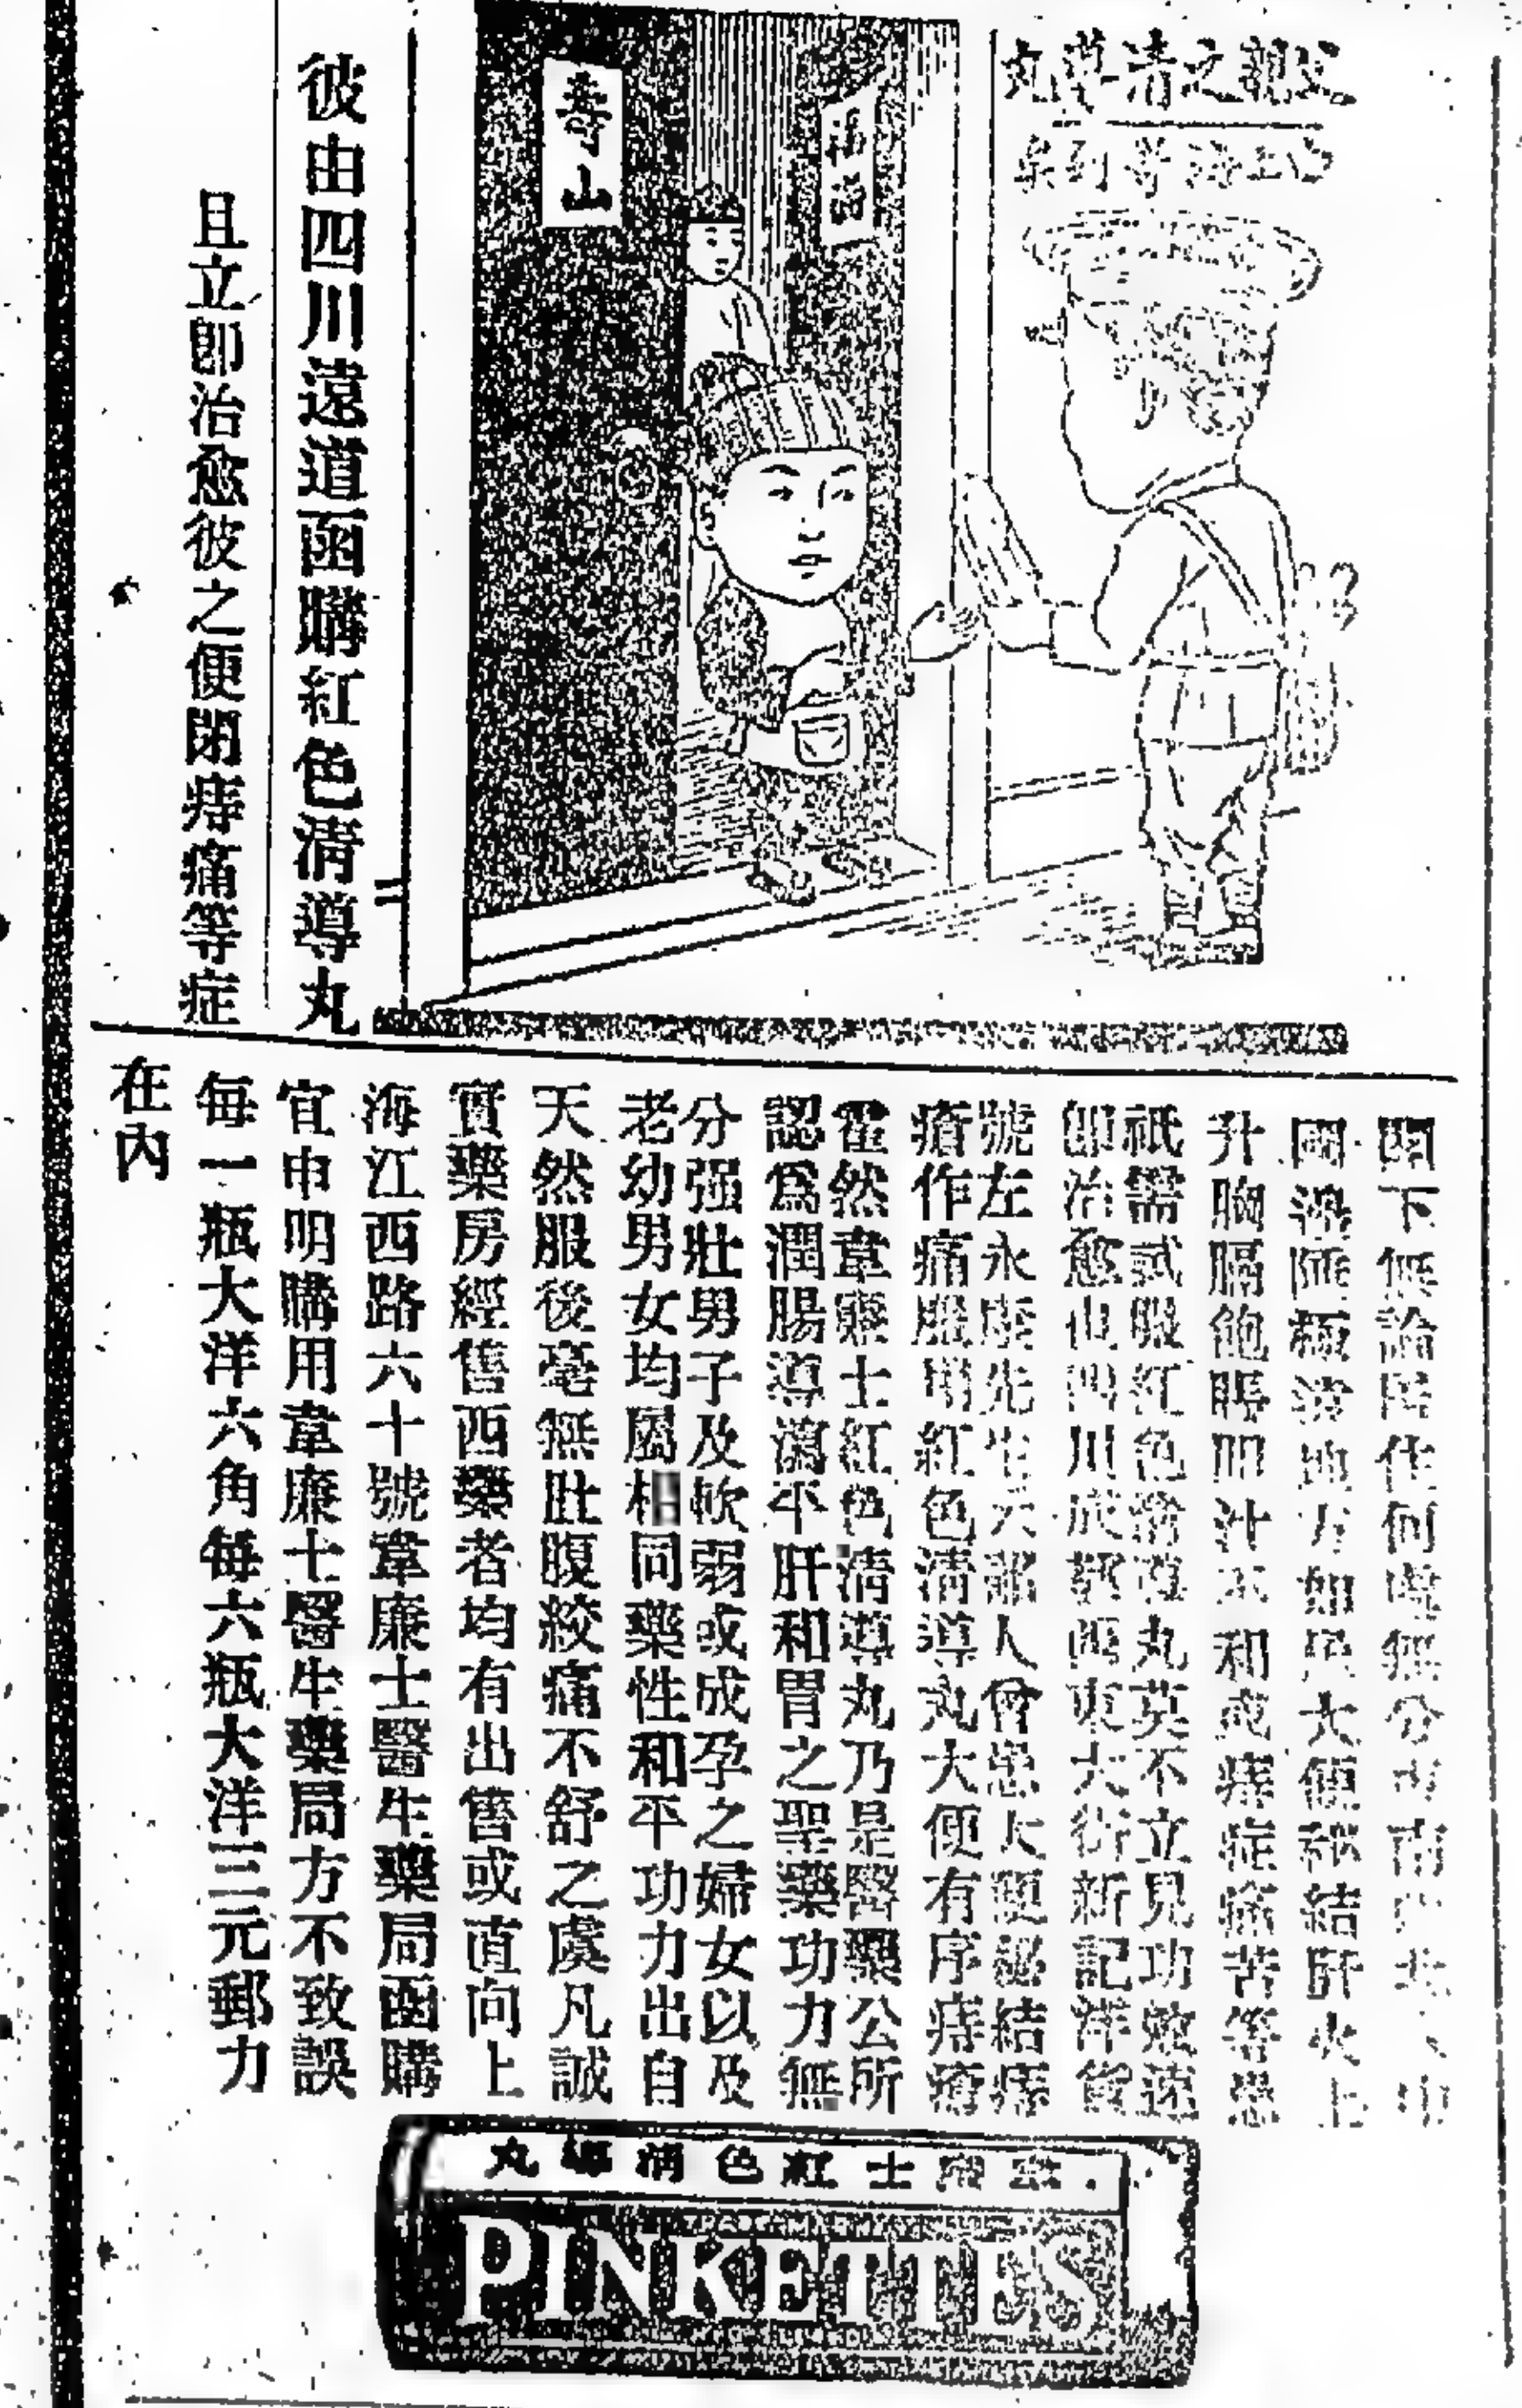 父親之清導丸
已上海寄到矣
壽山
福海
彼由四川遠道函購紅色清導丸
且立即治愈彼之便閉痔痛等症
閣下無論居住何處無分南北中
國濕陋極潮地方如凡大便祕結肝火上
升胸膈飽脹胆汁不和或痔症痛苦等患
祇需試服紅色清導丸莫不立見功效速
即治愈也四川成都西東大街新記洋貨
號左永康先生云鄙人曾患大便祕結痔
瘡作痛服用紅色清導丸大便有序痔瘡
霍然韋廉士紅色清導丸乃是醫藥公所
認爲潤腸導瀉平肝和胃之聖藥功力無
分强壯男子及軟弱或成孕之婦女以及
老幼男女均屬相同藥性和平功力出自
天然服後毫無肚腹絞痛不舒之虞凡誠
實藥房經售西藥者均有出售或直向上
海江西路六十號韋廉士醫生藥局函購
宜申明購用韋廉士醫生藥局方不致誤
每一瓶大洋六角每六瓶大洋三元郵力
在內
丸導清色紅士廉韋
PINKETTES